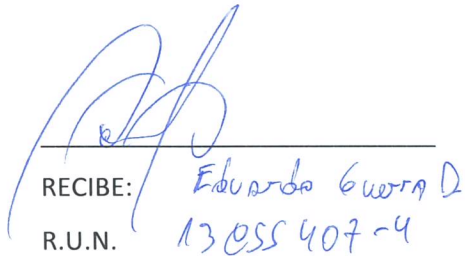 RECIBE: Eduardo Guerra D
R.U.N. 13 055 407-4